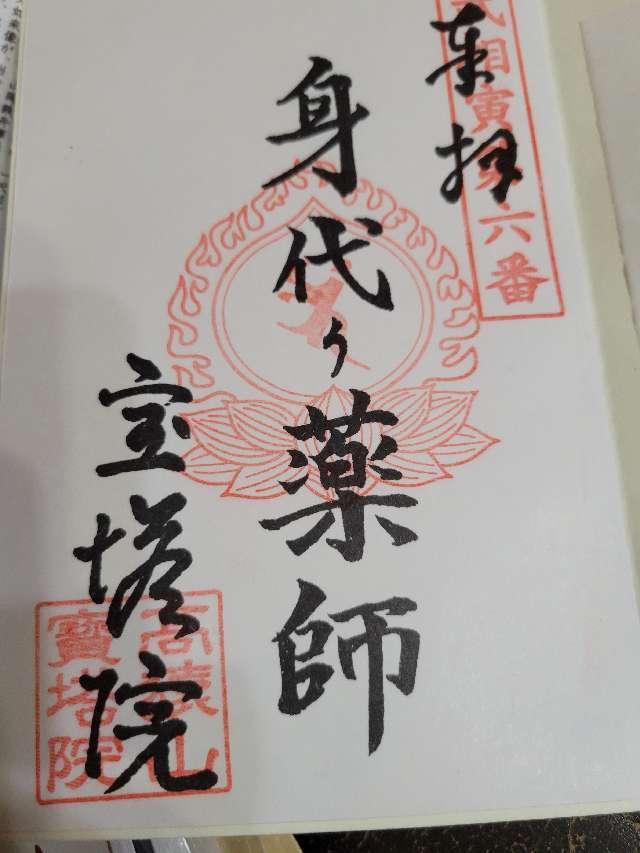 奉拝
武相寅第六番
身代り薬師
宝塔院
高猿山
寶塔院